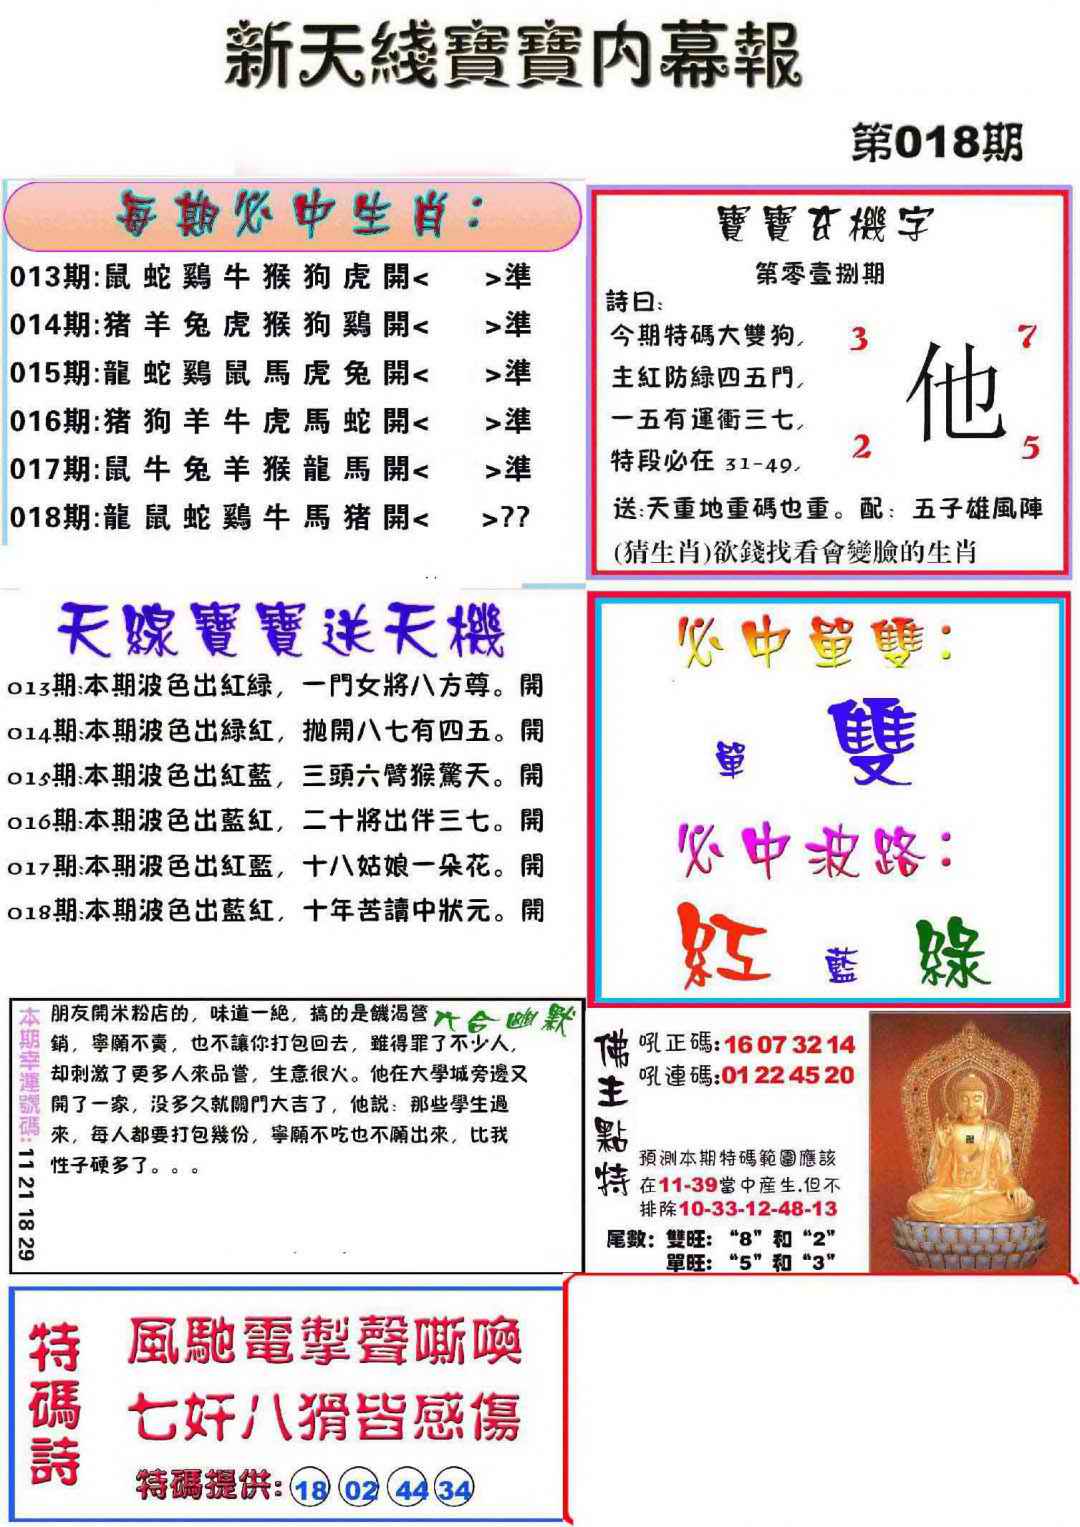 新天綫寶寶内幕報
第018期
每期必中生肖：
013期:鼠 蛇 鷄 牛 猴 狗 虎 開< >準
014期:猪 羊 兔 虎 猴 狗 鷄 開< >準
015期:龍 蛇 鷄 鼠 馬 虎 兔 開< >準
016期:猪 狗 羊 牛 虎 馬 蛇 開< >準
017期:鼠 牛 兔 羊 猴 龍 馬 開< >準
018期:龍 鼠 蛇 鷄 牛 馬 猪 開< >??
寶寶玄機字
第零壹捌期
詩曰:
今期特碼大雙狗,
主紅防綠四五門,
一五有運衝三七,
特段必在 31-49,
3 7
他
2 5
送:天重地重碼也重。配：五子雄風陣
(猜生肖)欲錢找看會變臉的生肖
天線寶寶送天機
013期:本期波色出紅緑，一門女將八方尊。開
014期:本期波色出緑紅，抛開八七有四五。開
015期:本期波色出紅藍，三頭六臂猴驚天。開
016期:本期波色出藍紅，二十將出伴三七。開
017期:本期波色出紅藍，十八姑娘一朵花。開
018期:本期波色出藍紅，十年苦讀中狀元。開
必中單雙：
單 雙
必中波路：
紅 藍 綠
本期幸運號碼: 11 21 18 29
六合幽默
朋友開米粉店的，味道一絶，搞的是饑渴營
銷，寧願不賣，也不讓你打包回去，雖得罪了不少人，
却刺激了更多人來品嘗，生意很火。他在大學城旁邊又
開了一家，没多久就關門大吉了，他説：那些學生過
來，每人都要打包幾份，寧願不吃也不願出來，比我
性子硬多了。。。
佛主點特
吼正碼:16 07 32 14
吼連碼:01 22 45 20
預測本期特碼範圍應該
在11-39當中産生.但不
排除10-33-12-48-13
尾數：雙旺：“8”和“2”
單旺：“5”和“3”
特碼詩
風馳電掣聲嘶喚
七奸八猾皆感傷
特碼提供: 18 02 44 34